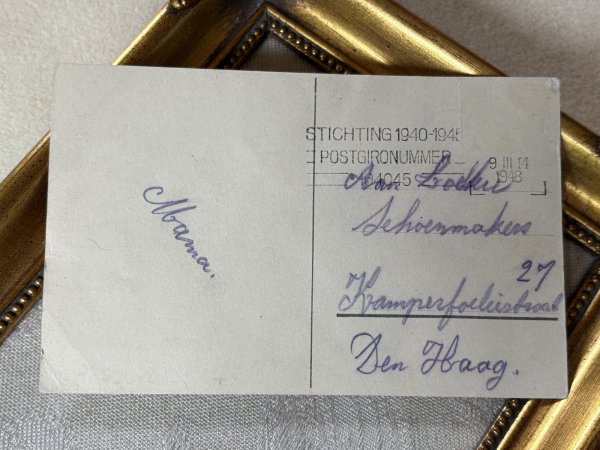 Mama.
STICHTING 1940-1945
POSTGIRONUMMER
194045
9 III 14
1948
Aan Loekie
Schoenmakers
27
Kamperfoeliestraat
Den Haag.